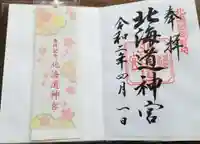 奉拝
北海道神宮
令和二年四月一日
北海道神宮